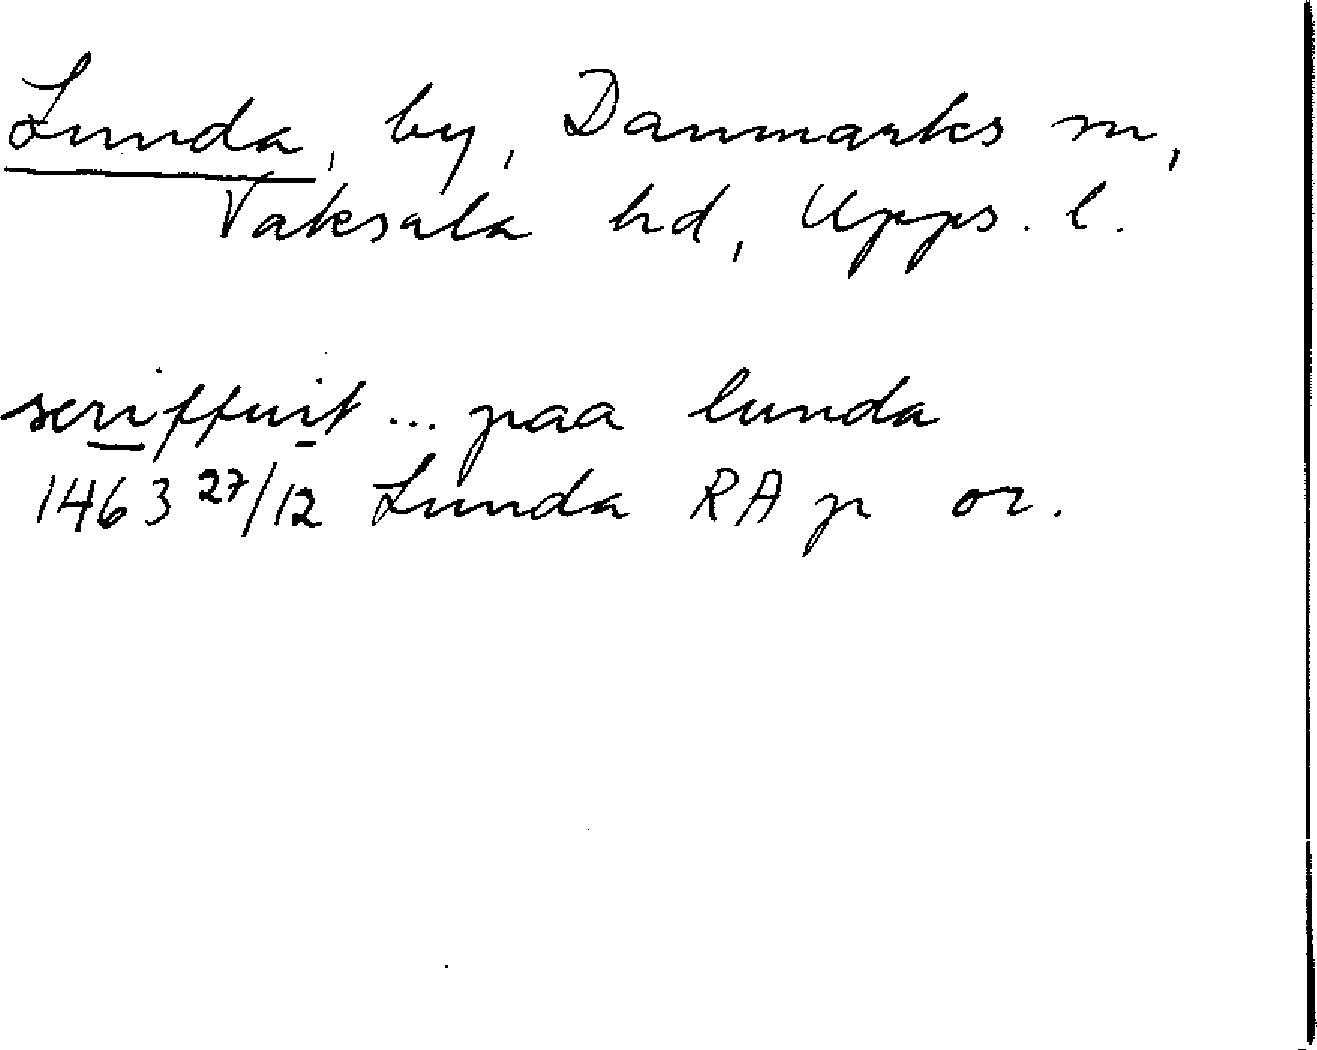 Lunda, by, Danmarks sn,
Vaksala hd, Upps. l.
scriffuit ... paa lunda
1463 27/12 Lunda RA p or.